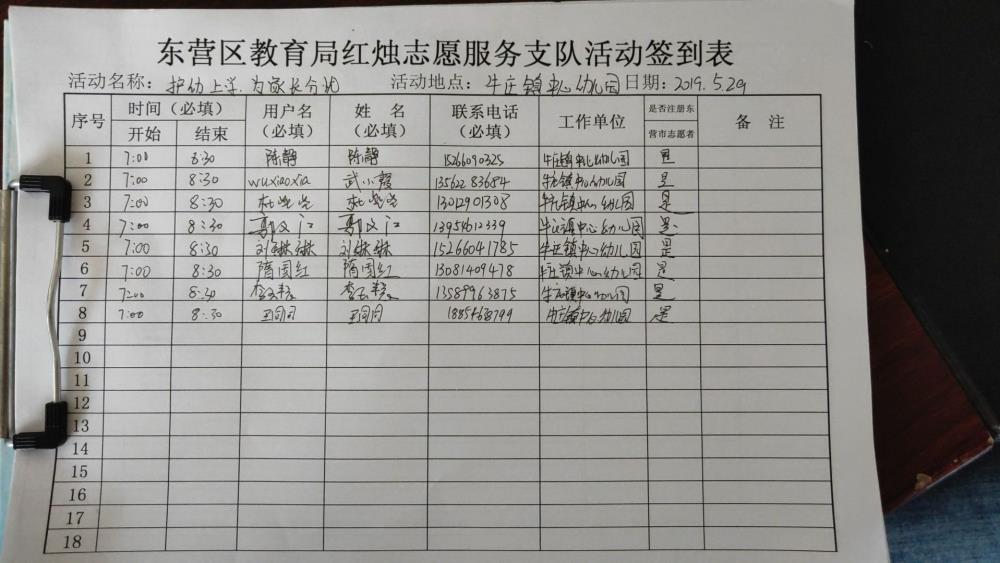 东营区教育局红烛志愿服务支队活动签到表
活动名称：护幼上学.为家长分忧 活动地点：牛庄镇中心幼儿园 日期：2019.5.29
序号 时间（必填） 用户名（必填） 姓 名（必填） 联系电话（必填） 工作单位 是否注册东营市志愿者 备 注
开始 结束
1 7:00 8:30 陈静 陈静 15266090325 牛庄镇中心幼儿园 是
2 7:00 8:30 wuxiaoxia 武小霞 13562283684 牛庄镇中心幼儿园 是
3 7:00 8:30 13012901308 牛庄镇中心幼儿园 是
4 7:00 8:30 郭文江 郭文江 13951612339 牛庄镇中心幼儿园 是
5 7:00 8:30 刘琳琳 刘琳琳 15266041785 牛庄镇中心幼儿园 是
6 7:00 8:30 隋国红 隋国红 13081409478 牛庄镇中心幼儿园 是
7 7:00 8:30 13589963875 牛庄镇中心幼儿园 是
8 7:00 8:30 牛庄镇中心幼儿园 是
9
10
11
12
13
14
15
16
17
18